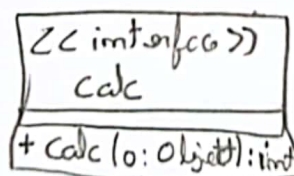 <<interface>>
calc
+ calc(o: Object): int